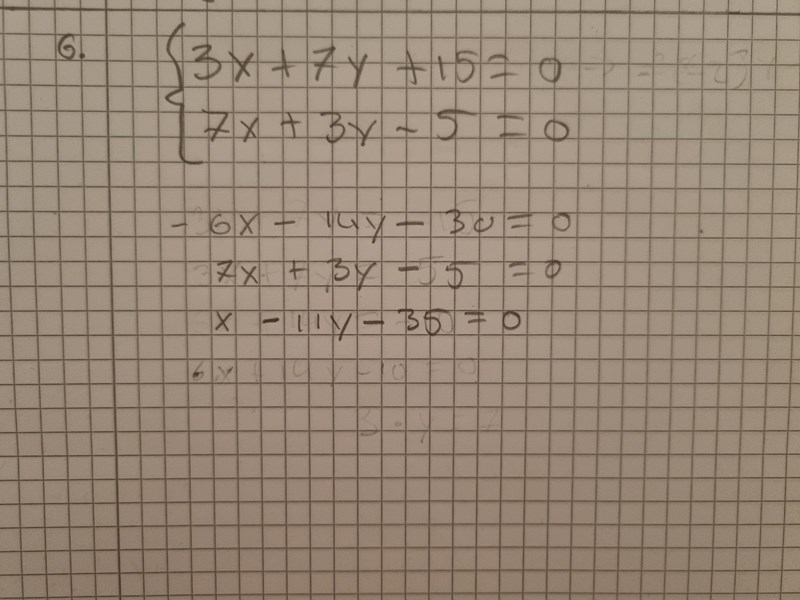 6.
3x + 7y + 15 = 0
7x + 3y - 5 = 0
- 6x - 14y - 30 = 0
7x + 3y - 5 = 0
x - 11y - 35 = 0